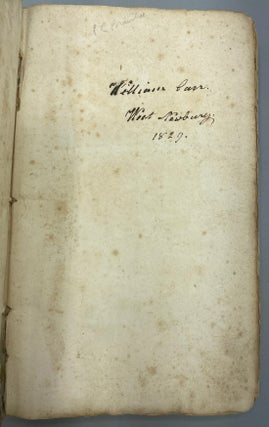 William Carr.
West Newbury.
1829.